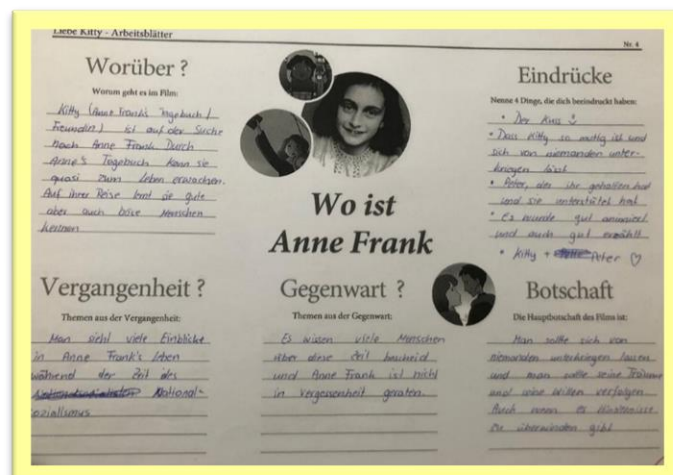 Liebe Kitty - Arbeitsblätter
Nr. 4
Worüber ?
Worum geht es im Film:
Kitty (Anne Frank's Tagebuch /
Freundin) ist auf der Suche
nach Anne Frank. Durch
Anne's Tagebuch kann sie
quasi zum Leben erwachen.
Auf ihrer Reise lernt sie gute
aber auch böse Menschen
kennen
Wo ist
Anne Frank
Eindrücke
Nenne 4 Dinge, die dich beeindruckt haben:
• Der Kuss
• Dass Kitty so mutig ist und
sich von niemanden unter-
kriegen lässt
• Peter, der ihr geholfen hat
und sie unterstützt hat
• Es wurde gut animiert
und auch gut erzählt
• Kitty + Peter ♡
Vergangenheit ?
Themen aus der Vergangenheit:
Man sieht viele Einblicke
in Anne Frank's Leben
während der Zeit des
National-
sozialismus
Gegenwart ?
Themen aus der Gegenwart:
Es wissen viele Menschen
über diese Zeit bescheid
und Anne Frank ist nicht
in vergessenheit geraten.
Botschaft
Die Hauptbotschaft des Films ist:
Man sollte sich von
niemanden unterkriegen lassen
und man sollte seine Träume
und seine Willen verfolgen
Auch wenn es Hindernisse
zu überwinden gibt